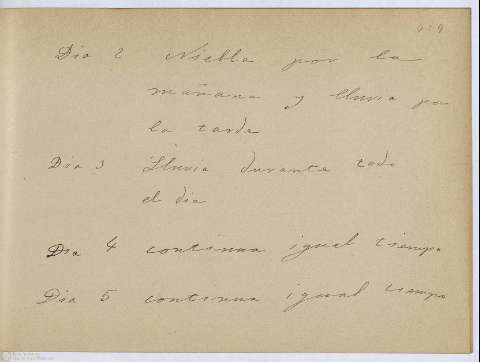 Dia 2 Niebla por la
mañana y lluvia po
la tarde
Dia 3 Lluvia durante todo
el dia
Dia 4 continua igual tiempo
Dia 5 continua igual tiempo